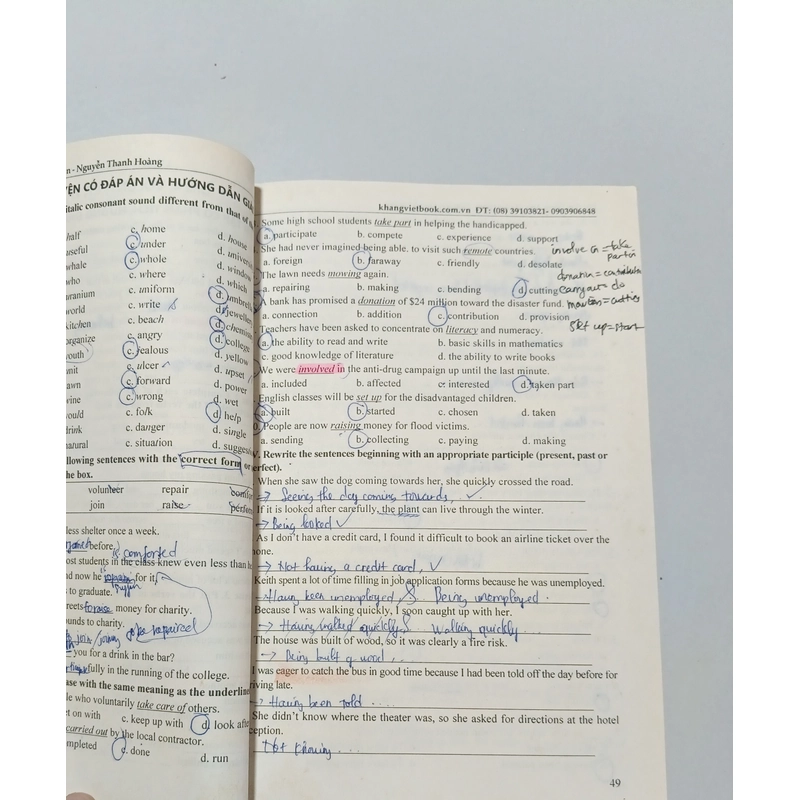 n - Nguyễn Thanh Hoàng
YỆN CÓ ĐÁP ÁN VÀ HƯỚNG DẪN GIẢ
italic consonant sound different from that of
half c. home d. house
useful c. under d. universi
whale c. whole d. window
who c. where d. which
uranium c. uniform d. umbrell
world c. write d. jewellery
kitchen c. beach d. chemis
organize c. angry d. college
youth c. jealous d. yellow
unit c. ulcer d. upset
awn c. forward d. power
wing c. wrong d. wet
would c. folk d. help
drink c. danger d. single
natural c. situation d. suggestio
llowing sentences with the correct form or
he box.
volunteer repair comfor
join raise perform
less shelter once a week.
before. is comforted
ost students in the class knew even less than
nd now he for it.
s to graduate.
reets to raise money for charity.
ounds to charity.
join / joining to be repaired
you for a drink in the bar?
fully in the running of the college.
ase with the same meaning as the underline
le who voluntarily take care of others.
et on with c. keep up with d. look afte
carried out by the local contractor.
mpleted c. done d. run
khangvietbook.com.vn ĐT: (08) 39103821- 0903906848
Some high school students take part in helping the handicapped.
a. participate b. compete c. experience d. support
She had never imagined being able. to visit such remote countries.
a. foreign b. faraway c. friendly d. desolate
The lawn needs mowing again.
a. repairing b. making c. bending d. cutting
A bank has promised a donation of $24 million toward the disaster fund.
a. connection b. addition c. contribution d. provision
Teachers have been asked to concentrate on literacy and numeracy.
a. the ability to read and write b. basic skills in mathematics
c. good knowledge of literature d. the ability to write books
We were involved in the anti-drug campaign up until the last minute.
a. included b. affected c. interested d. taken part
English classes will be set up for the disadvantaged children.
a. built b. started c. chosen d. taken
People are now raising money for flood victims.
a. sending b. collecting c. paying d. making
involve in = take
part in
donation = contribution
carry out = do
set up = start
V. Rewrite the sentences beginning with an appropriate participle (present, past or
perfect).
When she saw the dog coming towards her, she quickly crossed the road.
→ Seeing the dog coming towards,
If it is looked after carefully, the plant can live through the winter.
→ Being looked
As I don't have a credit card, I found it difficult to book an airline ticket over the
hone.
→ Not having a credit card,
Keith spent a lot of time filling in job application forms because he was unemployed.
→ Having been unemployed, Being unemployed.
Because I was walking quickly, I soon caught up with her.
→ Having walked quickly... Walking quickly
The house was built of wood, so it was clearly a fire risk.
→ Being built of wood,..
I was eager to catch the bus in good time because I had been told off the day before for
riving late.
→ Having been told ....
She didn't know where the theater was, so she asked for directions at the hotel
ception.
Not knowing ....
49